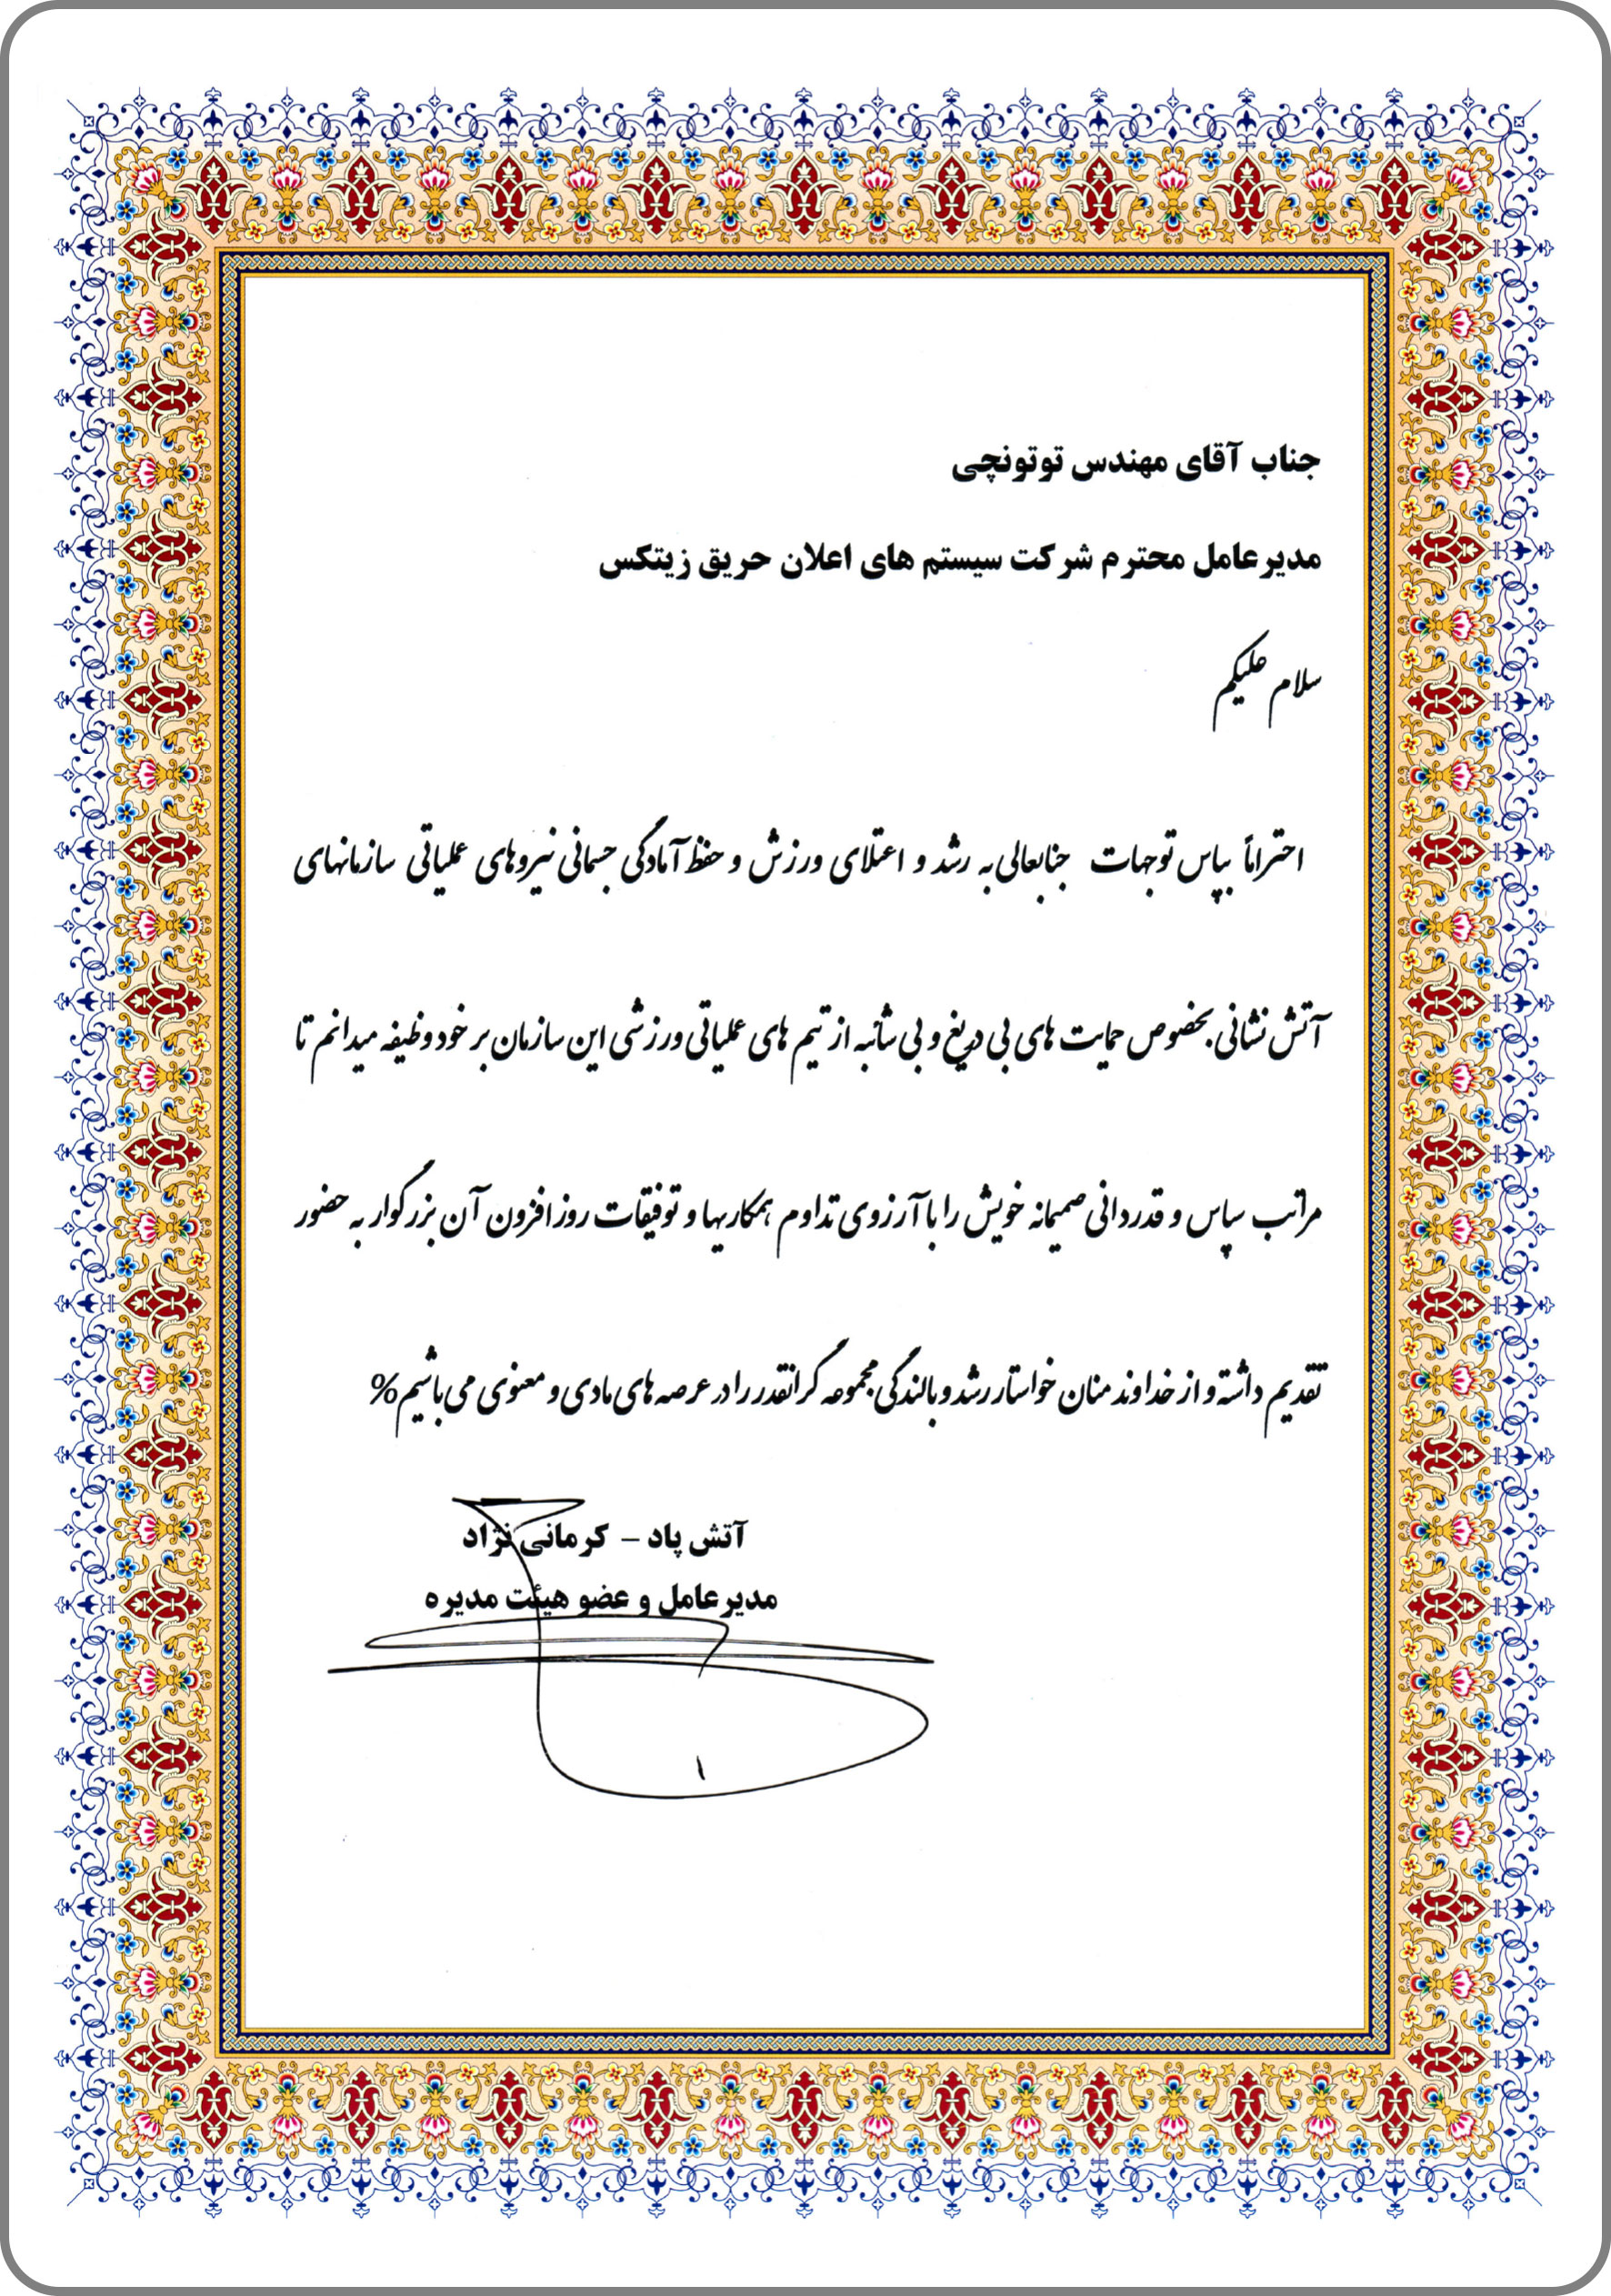 جناب آقای مهندس توتونچی
مدیرعامل محترم شرکت سیستم های اعلان حریق زیتکس
سلام علیکم
احتراماً بپاس توجهات جنابعالی به رشد و اعتلای ورزش و حفظ آمادگی جسمانی نیروهای عملیاتی سازمانهای
آتش نشانی بخصوص حمایت های بی دریغ و بی شائبه از تیم های عملیاتی ورزشی این سازمان بر خود وظیفه میدانم تا
مراتب سپاس و قدردانی صمیمانه خویش را با آرزوی تداوم همکاریها و توفیقات روز افزون آن بزرگوار به حضور
تقدیم داشته و از خداوند منان خواستار رشد و بالندگی مجموعه گرانقدر را در عرصه های مادی و معنوی می باشیم%
آتش پاد - کرمانی نژاد
مدیرعامل و عضو هیئت مدیره